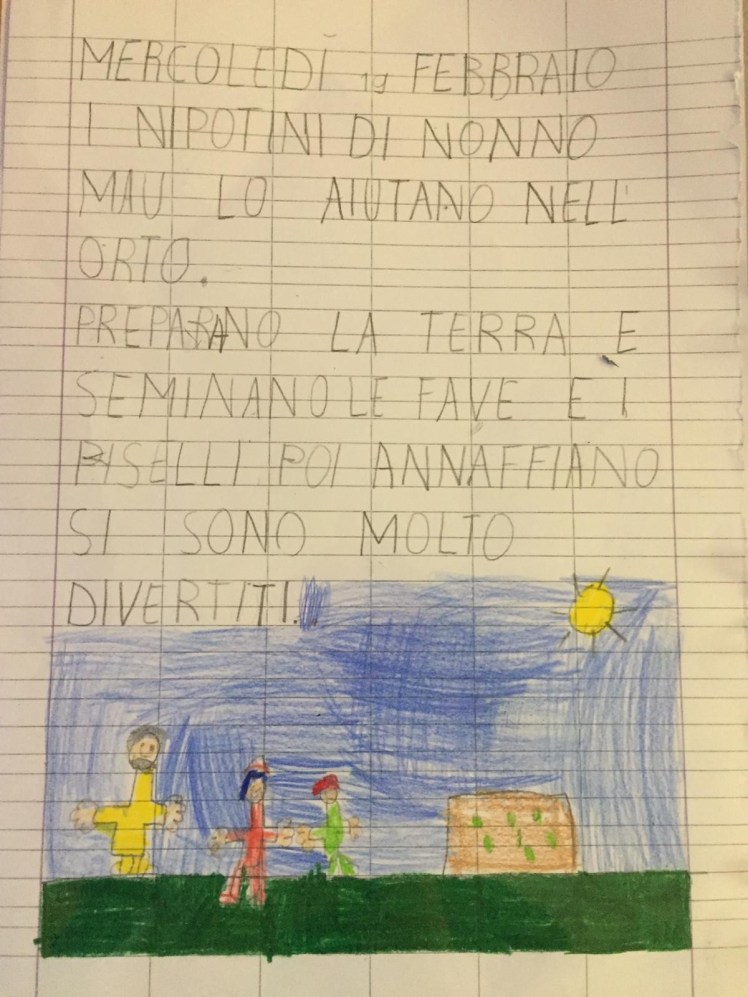 MERCOLEDÌ 19 FEBBRAIO
I NIPOTINI DI NONNO
MAU LO AIUTANO NELL'
ORTO.
PREPARANO LA TERRA E
SEMINANO LE FAVE E I
PISELLI POI ANNAFFIANO
SI SONO MOLTO
DIVERTITI.